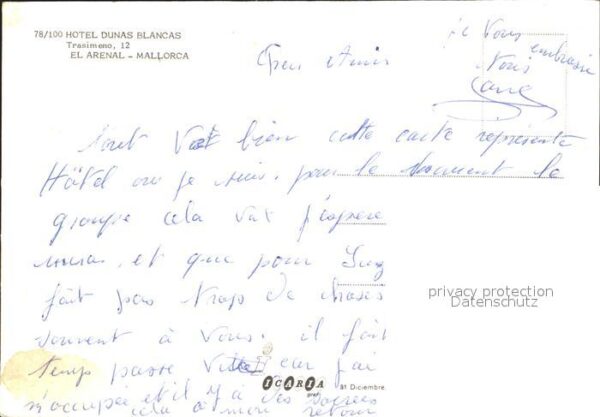 78/100 HOTEL DUNAS BLANCAS
Trasimeno, 12
EL ARENAL - MALLORCA
Cher Amis
Je Vous embrasse
Tout Vat bien cette carte représente
Hôtel ou je suis. pour le moment le
groupe cela vat j'espère
et que pour
fait pas trop de choses
souvent à Vous. il fait
temps passe Vite car j'ai
m'occupée et il y a des soirées
cela à mon retour
privacy protection
Datenschutz
ICARIA
31 Diciembre